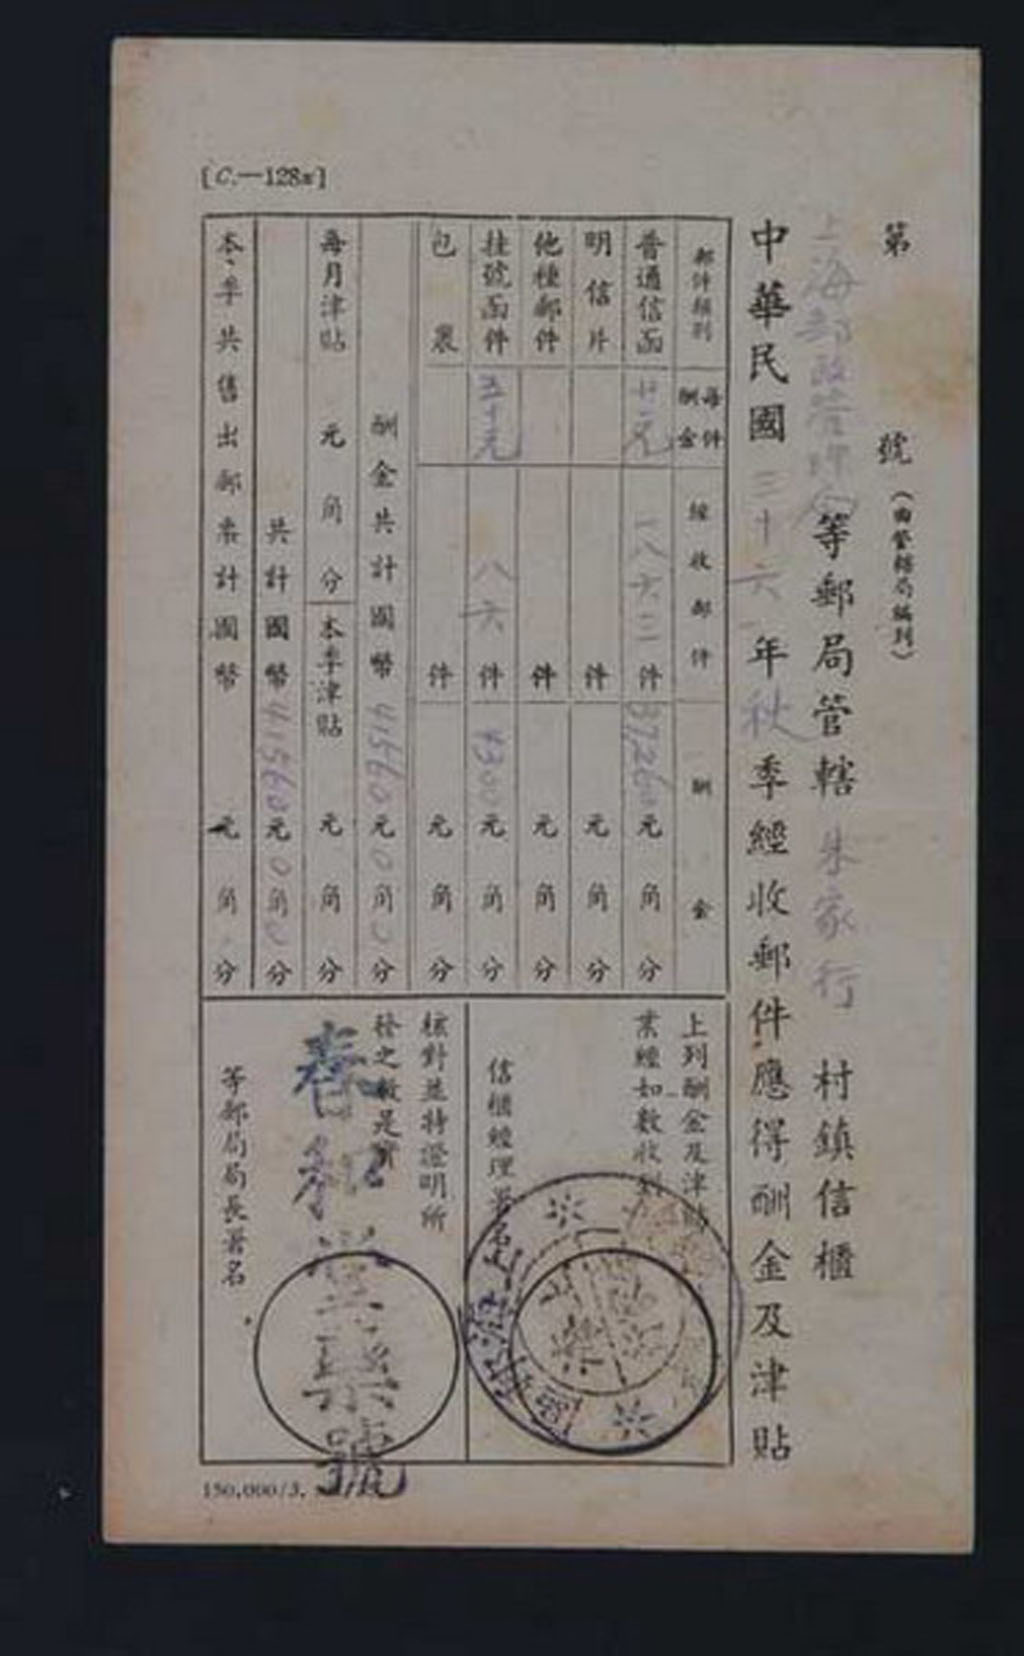 [C.—128a]
第 號（由管轄局編列）
上海郵政管理局等郵局管轄朱家行 村鎮信櫃
中華民國三十六年秋季經收郵件應得酬金及津貼
郵件類別 每件酬金 經收郵件 酬金
普通信函 廿元 一八六三件 37260元 角 分
明信片 件 元 角 分
他種郵件 件 元 角 分
挂號函件 五十元 八六件 4300元 角 分
包裹 件 元 角 分
酬金共計國幣41560元0角0分
每月津貼 元 角 分 本季津貼 元 角 分
共計國幣41560元0角0分
本季共售出郵票計國幣 元 角 分
上列酬金及津貼
業經如數收到
信櫃經理署名
核對並特證明所
發之數是實
春和堂藥號
等郵局局長署名
150,000/3.